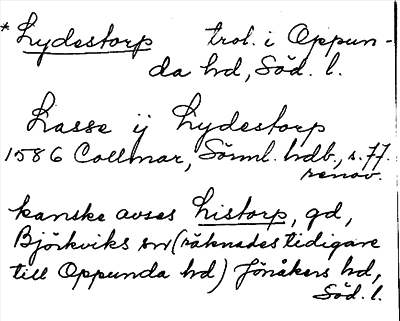 *Lydestorp trol. i Oppun-
da hd, Söd. l.
Lasse ij Lydestorp
1586 Collmar, Sörml. hdb., s. 77.
renov.
kanske avses Listorp, gd,
Björkviks sn (räknades tidigare
till Oppunda hd) Jönåkers hd,
Söd. l.